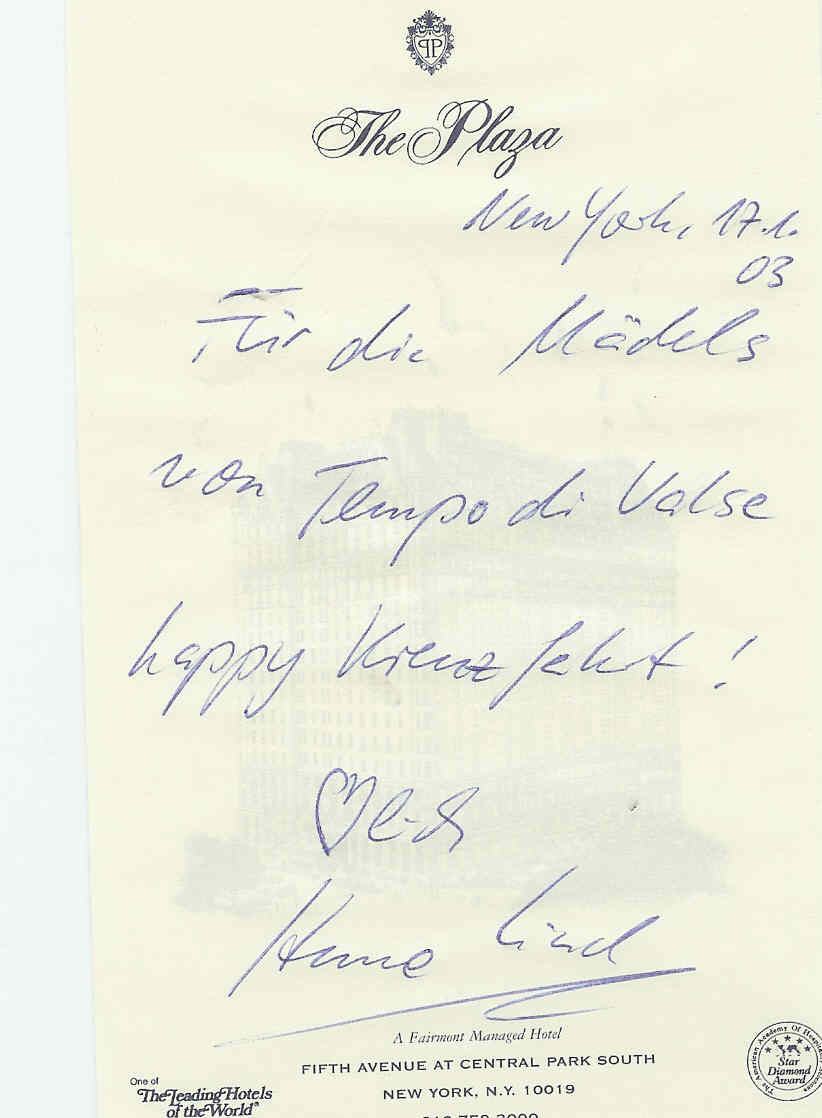 The Plaza
New York, 17.1.
03
Für die Mädels
von Tempo di Valse
happy Kreuzfahrt!
♡lich
Hera Lind
A Fairmont Managed Hotel
FIFTH AVENUE AT CENTRAL PARK SOUTH
NEW YORK, N.Y. 10019
One of
The Leading Hotels
of the World®
The American Academy Of Hospitality Sciences
Star
Diamond
Award